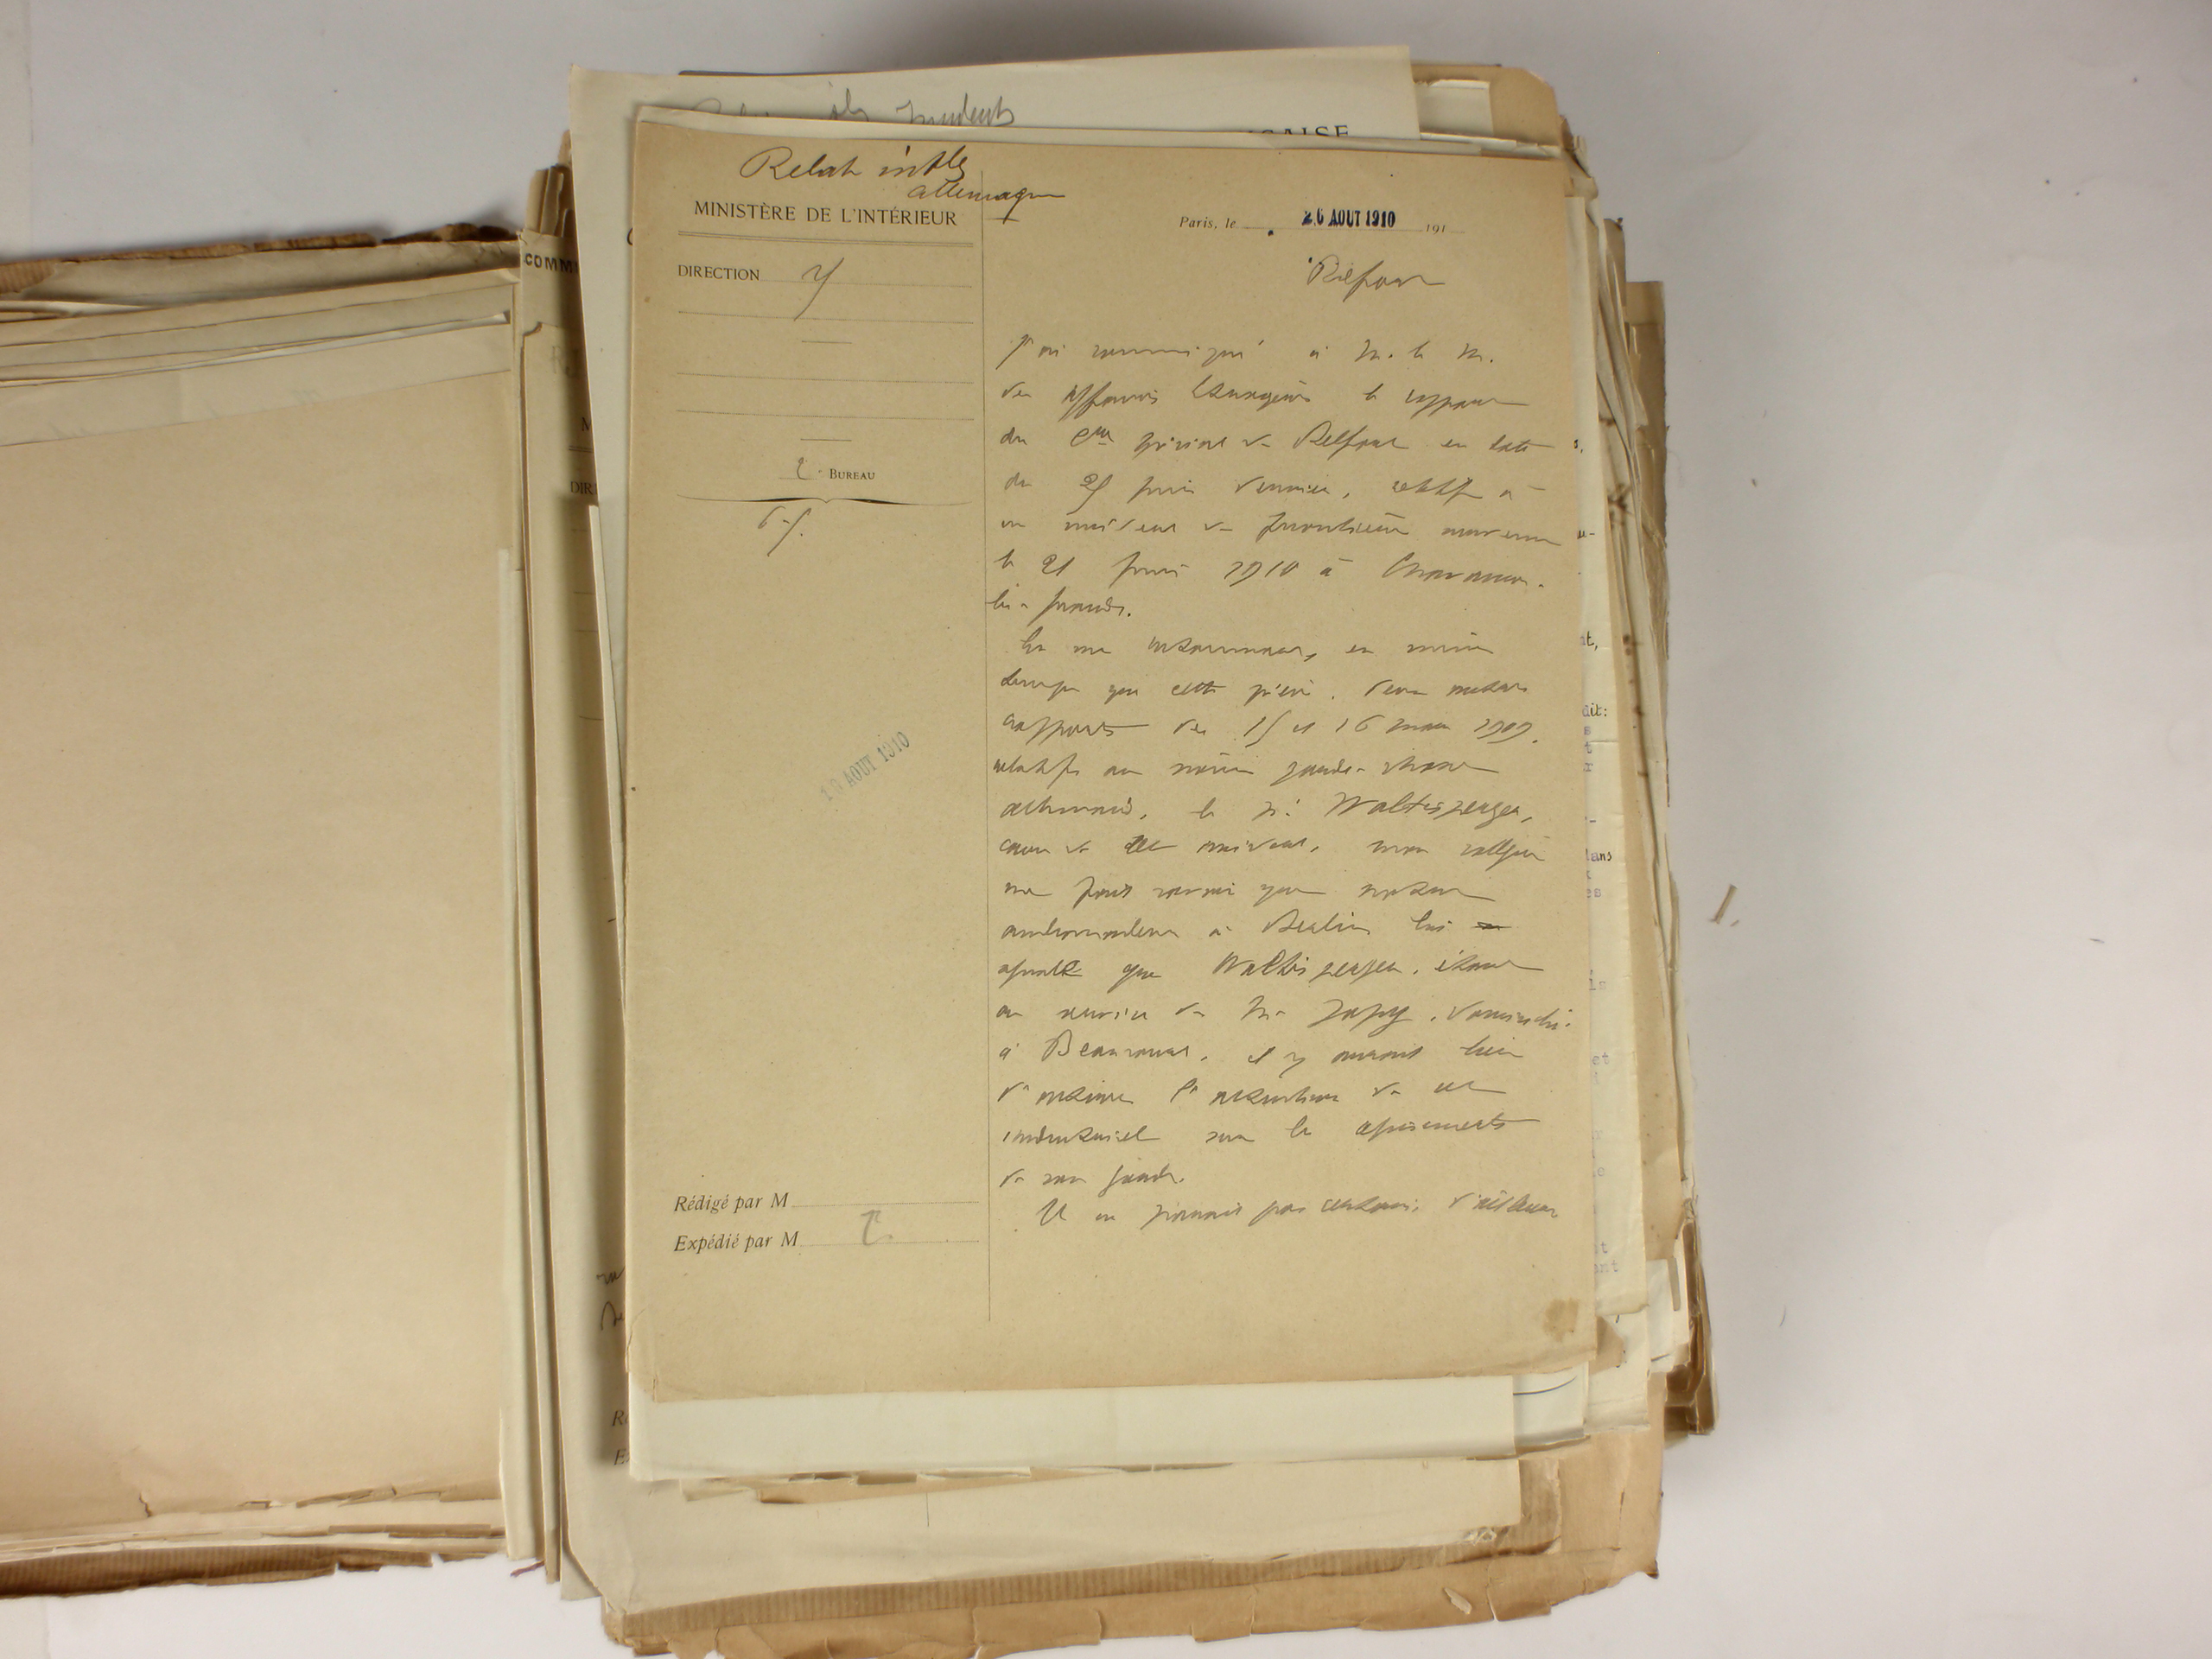 Relat intles
allemagne
MINISTÈRE DE L'INTÉRIEUR
DIRECTION
2e BUREAU
10 AOUT 1910
Rédigé par M
Expédié par M
Paris, le 26 AOUT 1910 191
Belfort
J'ai communiqué à M. le M.
des Affaires Etrangères le rapport
du Cre spécial de Belfort en date
du 25 juin dernier, relatif à
un incident de frontière survenu
le 21 juin 1910 à Chavannes-
les-Grands.
En me retournant, en même
temps que cette pièce, deux autres
rapports des 15 et 16 mars 1909,
relatifs au même garde-chasse
allemand, le sr Waltisperger,
cause de cet incident, mon collègue
me fait savoir que notre
ambassadeur à Berlin lui
ajoute que Waltisperger, étant
au service de Mr Japy, domicilié
à Beaucourt, il y aurait lieu
d'attirer l'attention de cet
industriel sur les agissements
de son garde.
Il ne paraît pas certain, d'ailleurs
COMM
DIR